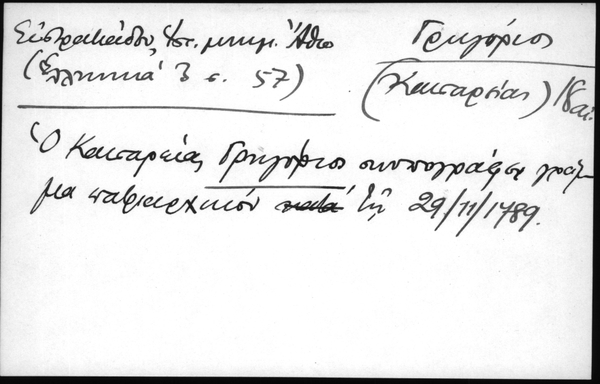 Εὐστρατιάδου, Ἱστ. μνημ. Ἄθω
(Ἑλληνικά 3 σ. 57)
Γρηγόριος
(Καισαρείας) 18 αἰ.
Ὁ Καισαρείας Γρηγόριος συνυπογράφει γράμ-
μα πατριαρχικόν κατά τῇ 29/11/1789.